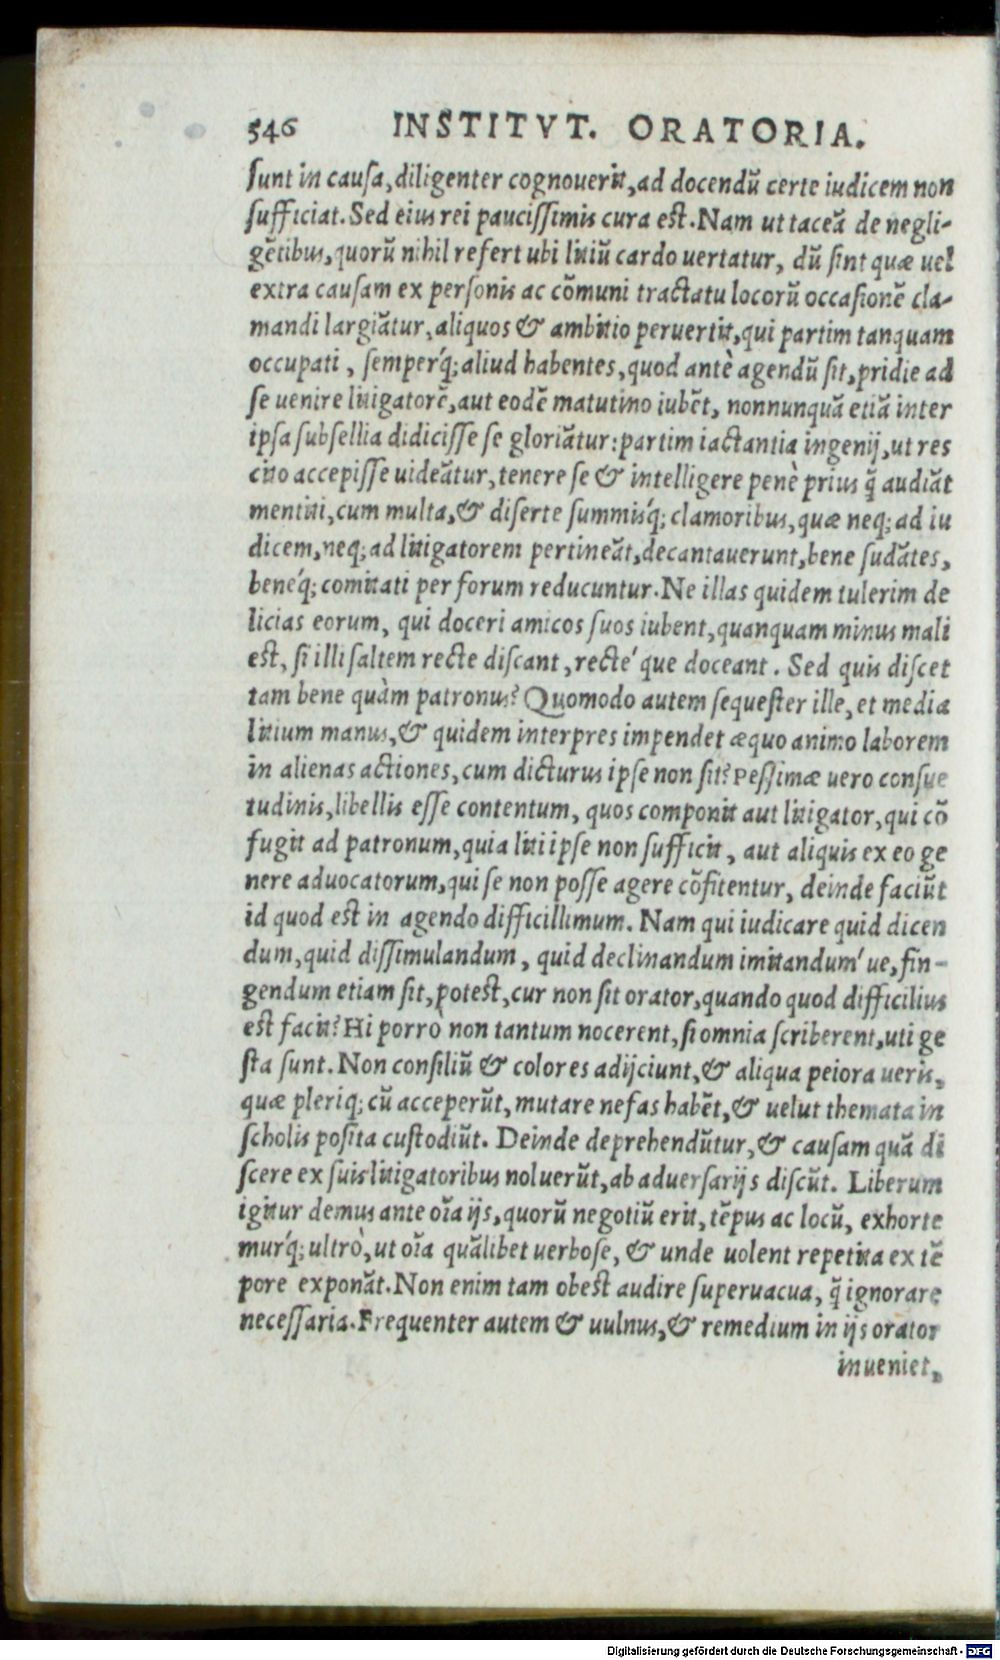 546 INSTITVT. ORATORIA.
sunt in causa, diligenter cognouerit, ad docendū certe iudicem non
sufficiat. Sed eius rei paucissimis cura est. Nam ut taceā de negli-
gētibus, quorū nihil refert ubi litiū cardo uertatur, dū sint quæ uel
extra causam ex personis ac cōmuni tractatu locorū occasionē cla-
mandi largiātur, aliquos & ambitio peruertit, qui partim tanquam
occupati, semperq́; aliud habentes, quod antè agendū sit, pridie ad
se uenire litigatorē, aut eodē matutino iubēt, nonnunquā etiā inter
ipsa subsellia didicisse se gloriātur: partim iactantia ingenij, ut res
cito accepisse uideātur, tenere se & intelligere penè prius q̃ audiāt
mentiti, cum multa, & diserte summisq́; clamoribus, quæ neq; ad iu
dicem, neq; ad litigatorem pertineāt, decantauerunt, bene sudātes,
beneq́; comitati per forum reducuntur. Ne illas quidem tulerim de
licias eorum, qui doceri amicos suos iubent, quanquam minus mali
est, si illi saltem recte discant, recte´ que doceant. Sed quis discet
tam bene quàm patronus? Quomodo autem sequester ille, et media
litium manus, & quidem interpres impendet æquo animo laborem
in alienas actiones, cum dicturus ipse non sit? Pessimæ uero consue
tudinis, libellis esse contentum, quos componit aut litigator, qui cō
fugit ad patronum, quia liti ipse non sufficit, aut aliquis ex eo ge
nere aduocatorum, qui se non posse agere cōfitentur, deinde faciūt
id quod est in agendo difficillimum. Nam qui iudicare quid dicen
dum, quid dissimulandum, quid declinandum imitandum´ ue, fin-
gendum etiam sit, potest, cur non sit orator, quando quod difficilius
est facit? Hi porrò non tantum nocerent, si omnia scriberent, uti ge
sta sunt. Non consiliū & colores adijciunt, & aliqua peiora ueris,
quæ pleriq; cū acceperūt, mutare nefas habēt, & uelut themata in
scholis posita custodiūt. Deinde deprehendūtur, & causam quā di
scere ex suis litigatoribus noluerūt, ab aduersarijs discūt. Liberum
igitur demus ante oīa ijs, quorū negotiū erit, tēpus ac locū, exhorte
murq́; ultrò, ut oīa quālibet uerbose, & unde uolent repetita ex tē
pore exponāt. Non enim tam obest audire superuacua, q̃ ignorare
necessaria. Frequenter autem & uulnus, & remedium in ijs orator
inueniet,
Digitalisierung gefördert durch die Deutsche Forschungsgemeinschaft - DFG